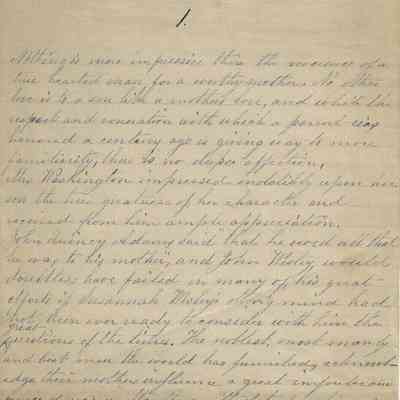 1.
Nothing is more impressive than the reverence of a
true hearted man for a worthy mother. No other
love is to a son like a mother's love, and while the
respect and veneration with which a parent was
honored a century ago is giving way to more
familiarity, there is no deeper affection.
Mrs Washington impressed indelibly upon her
son the true greatness of her character and
received from him ample appreciation.
John Quincy Adams said "that he owed all that
he was, to his mother", and John Wesley would
doubtless have failed in many of his great
efforts if Susannah Wesley's strong mind had
not been ever ready to consider with him the
great
questions of the times. The noblest, most manly
and best men the world has furnished, acknowl-
edge their mothers influence a great